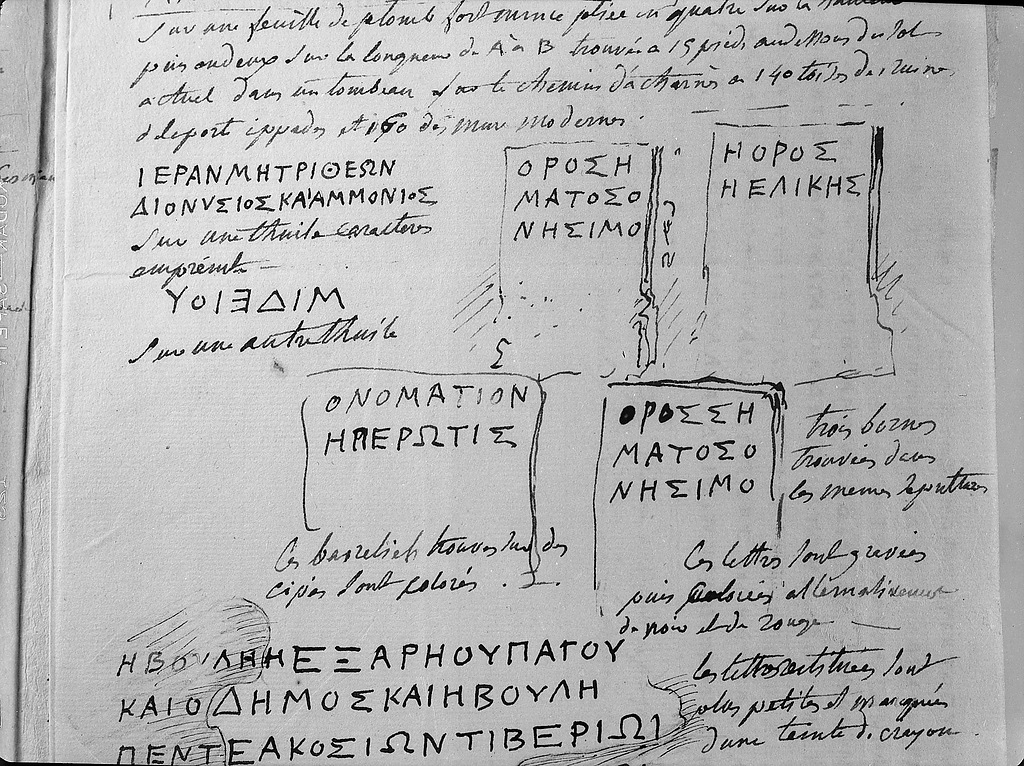 Sur une feuille de plomb fort mince pliée en quatre sur la hauteur
puis en deux sur la longueur de A à B trouvée a 15 pieds au dessous du sol
actuel dans un tombeau sur le chemin d'acharnès a 140 toises des ruines
de port hippades et 160 des murs modernes.
ΙΕΡΑΝΜΗΤΡΙΘΕΩΝ
ΔΙΟΝΥΣΙΟΣΚΑΙΑΜΜΟΝΙΟΣ
Sur une thuile caracteres
empreints
ΥΟΙΞΔΙΜ
Sur une autre thuile
ΟΡΟΣΗ
ΜΑΤΟΣΟ
ΝΗΣΙΜΟ
ΗΟΡΟΣ
ΗΕΛΙΚΗΣ
Σ
ΟΝΟΜΑΤΙΟΝ
ΗΠΕΡΩΤΙΣ
ΟΡΟΣΣΗ
ΜΑΤΟΣΟ
ΝΗΣΙΜΟ
trois bornes
trouvées dans
les memes sepultures
Ces basreliefs trouvés sur des
cipes sont colorés.
Ces lettres sont gravées
puis colorées alternativement
de noir et de rouge
ΗΒΟΥΛΗΗΕΞΑΡΗΟΥΠΑΓΟΥ
ΚΑΙΟΔΗΜΟΣΚΑΙΗΒΟΥΛΗ
ΠΕΝΤΕΑΚΟΣΙΩΝΤΙΒΕΡΙΩΙ
les lettres restituées sont
plus petites et marquées
d'une teinte de crayon.